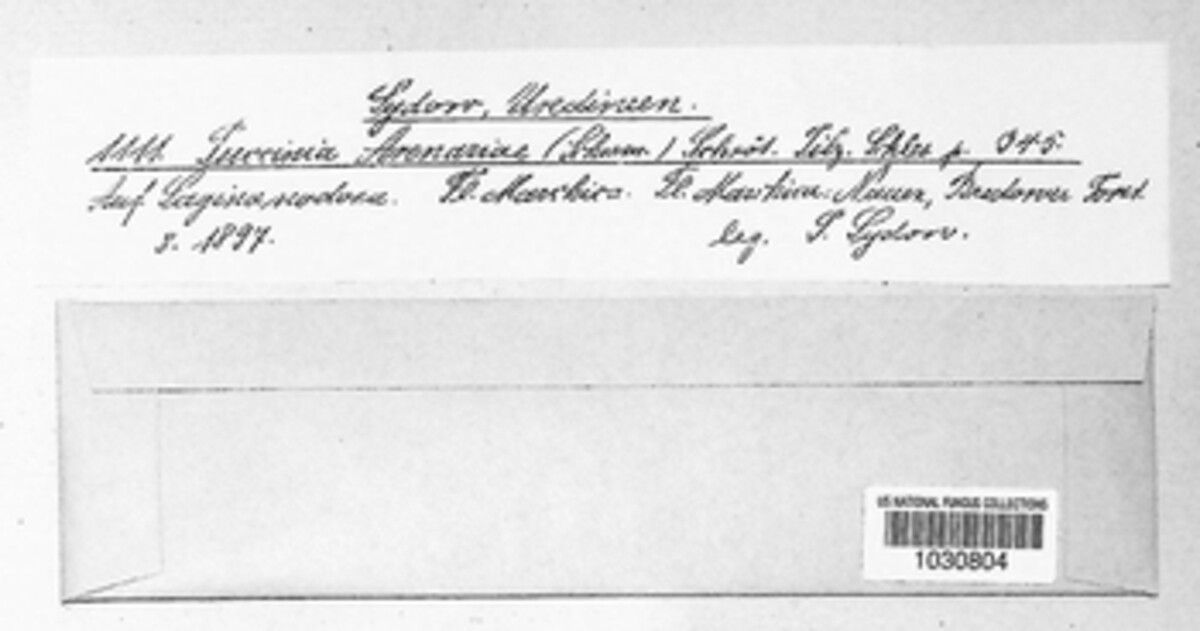 Sydow, Uredineen.
1111. Puccinia Arenariae (Schum.) Schröt. Pilz. Schles p. 345.
Auf Sagina nodosa. Fl. Marchica. Nauen, Bredower Forst
8. 1897. leg. P. Sydow.
US NATIONAL FUNGUS COLLECTIONS
1030804